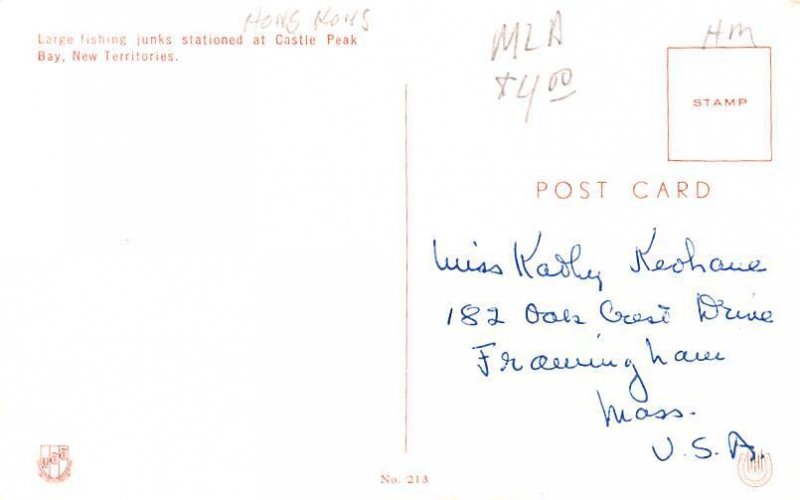 HONG KONG
Large fishing junks stationed at Castle Peak
Bay, New Territories.
MLA
$4.00
HM
STAMP
POST CARD
Miss Kathy Keohane
182 Oak Crest Drive
Framingham
Mass.
U.S.A.
No. 213